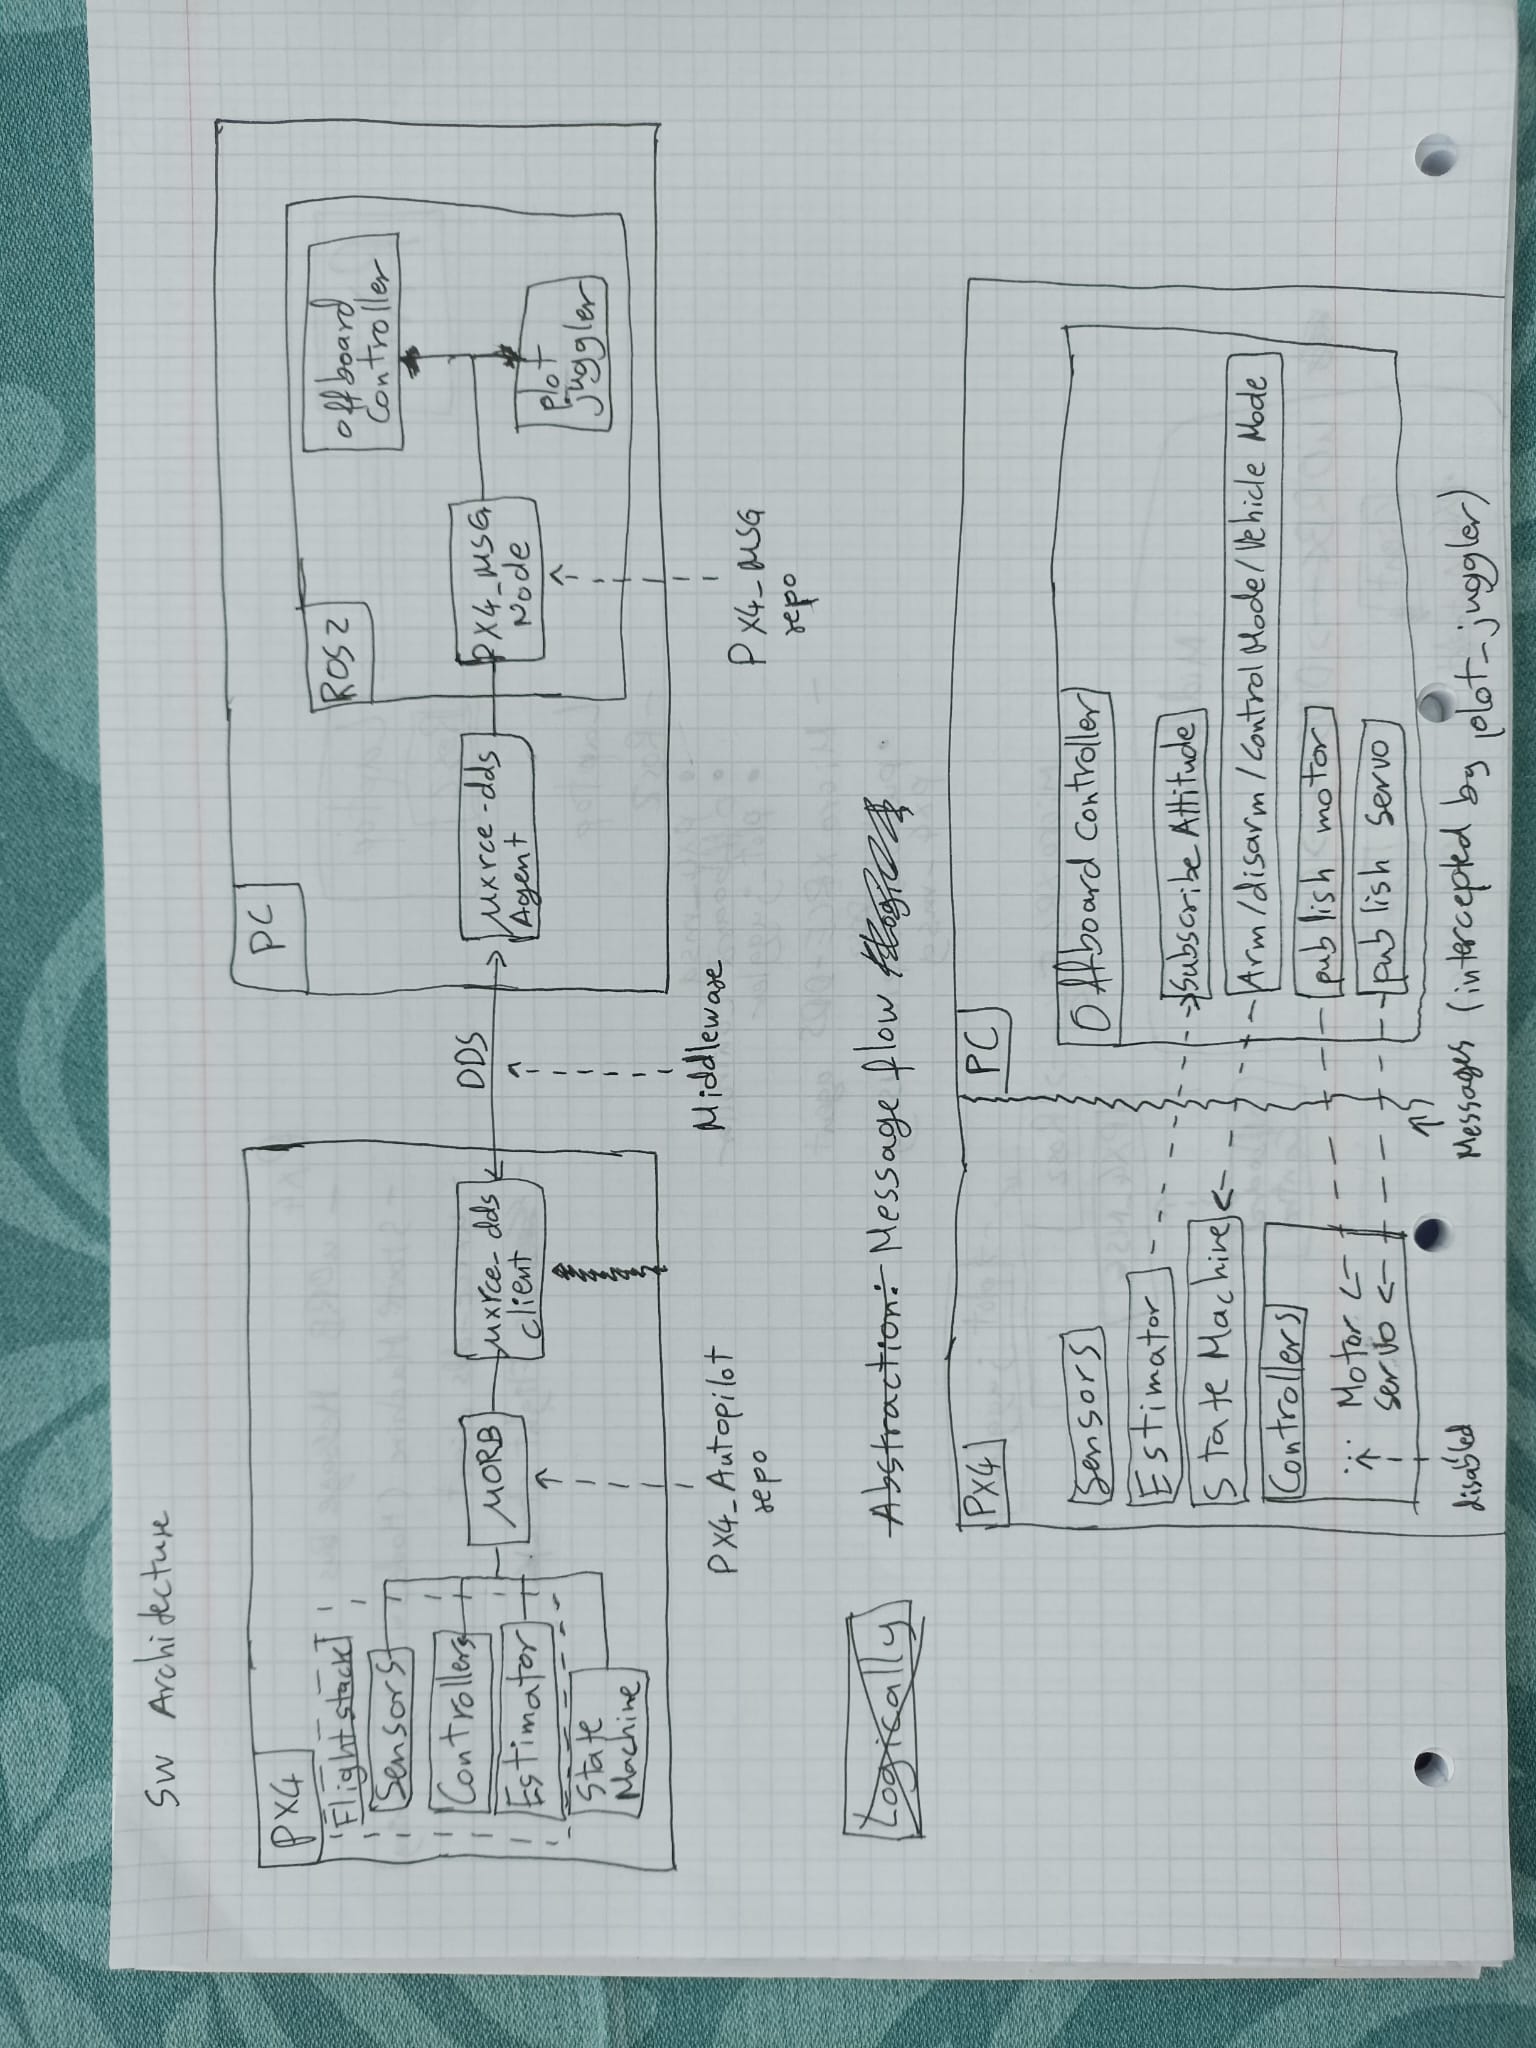 SW Architecture
PX4
Flight stack
Sensors
Controllers
Estimator
State
Machine
μORB
μxrce-dds
client
PX4_Autopilot
repo
DDS
Middleware
PC
μxrce-dds
Agent
ROS2
PX4_MSG
Node
PX4_MSG
repo
Offboard
Controller
plot
juggler
Logically
Abstraction: Message flow
PX4
Sensors
Estimator
State Machine
Controllers
Motor
servo
disabled
PC
Offboard Controller
Subscribe Attitude
Arm/disarm/Control Mode/Vehicle Mode
publish motor
publish servo
Messages (intercepted by plot_juggler)